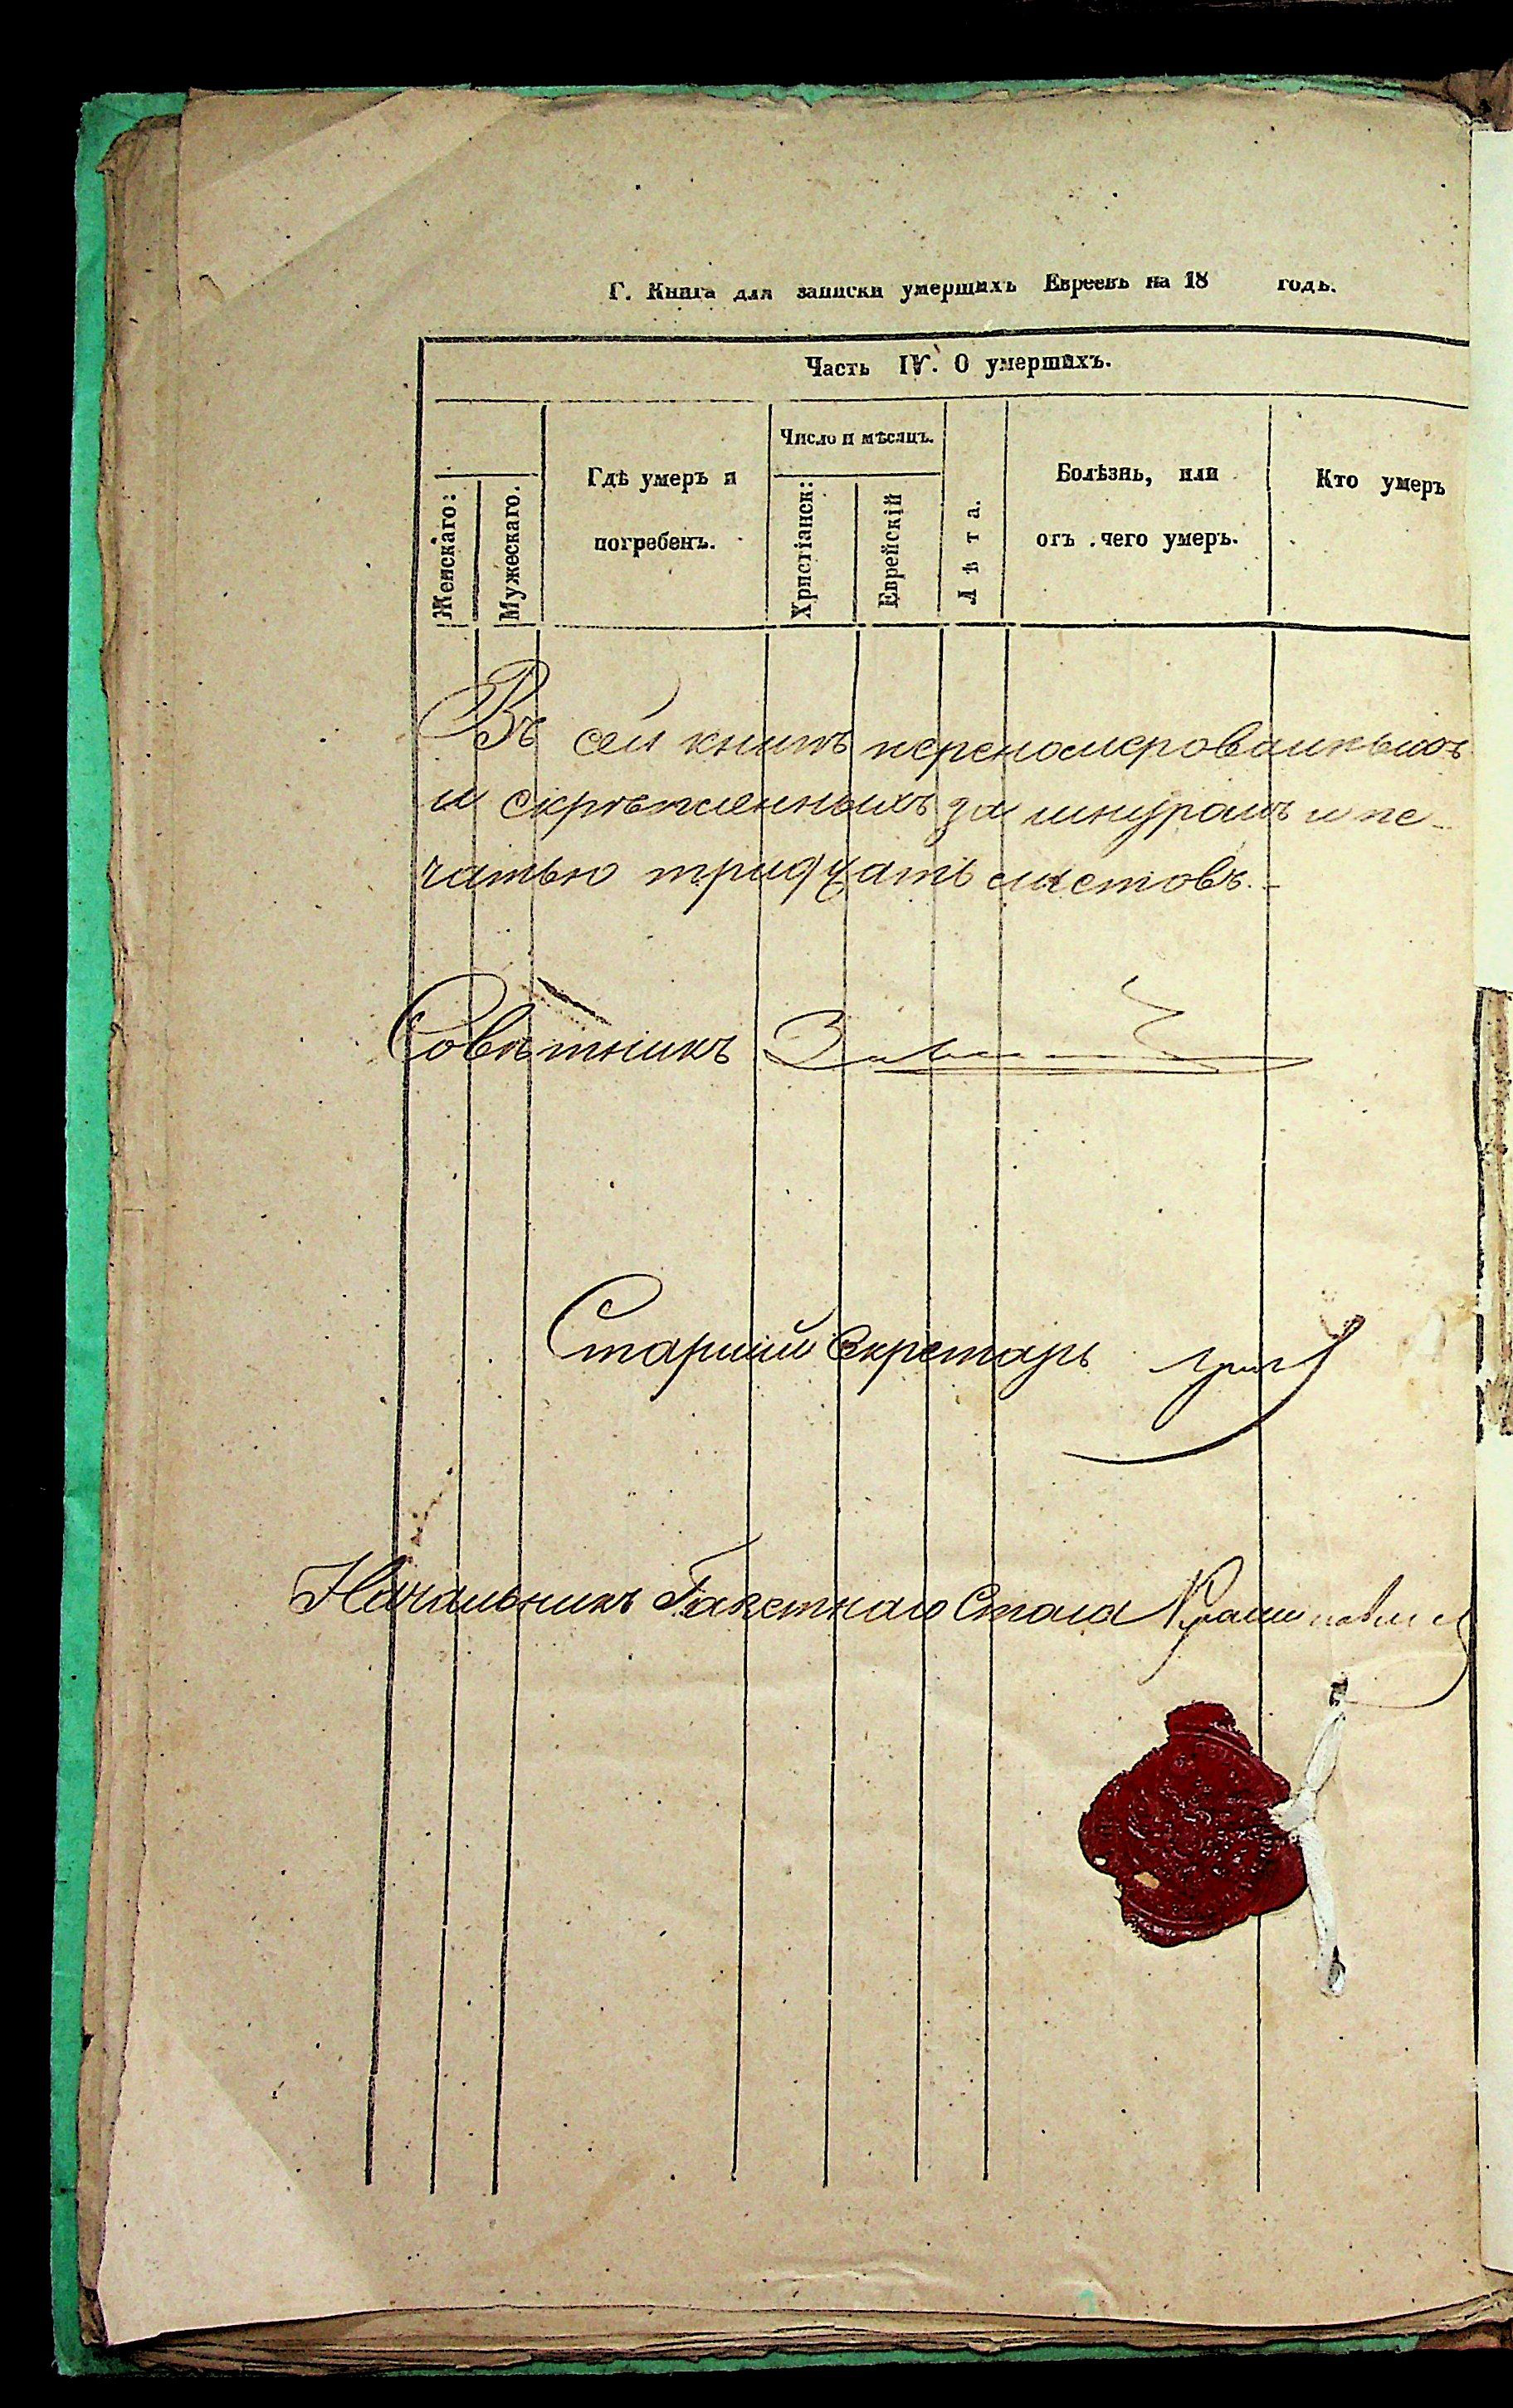 Г. Книга для записки умершихъ Евреевъ на 18 годъ.
Часть IV. О умершихъ.
Женскаго:
Мужескаго.
Гдѣ умеръ и
погребенъ.
Число и мѣсяцъ.
Христіанск:
Еврейскій
Лѣта.
Болѣзнь, или
отъ чего умеръ.
Кто умеръ
Въ сей книгѣ переномерованныхъ
и скрѣпленныхъ за шнуромъ и пе-
чатью тридцать листовъ.-
Совѣтникъ
Старшій Секретарь
Начальникъ Газетнаго Стола